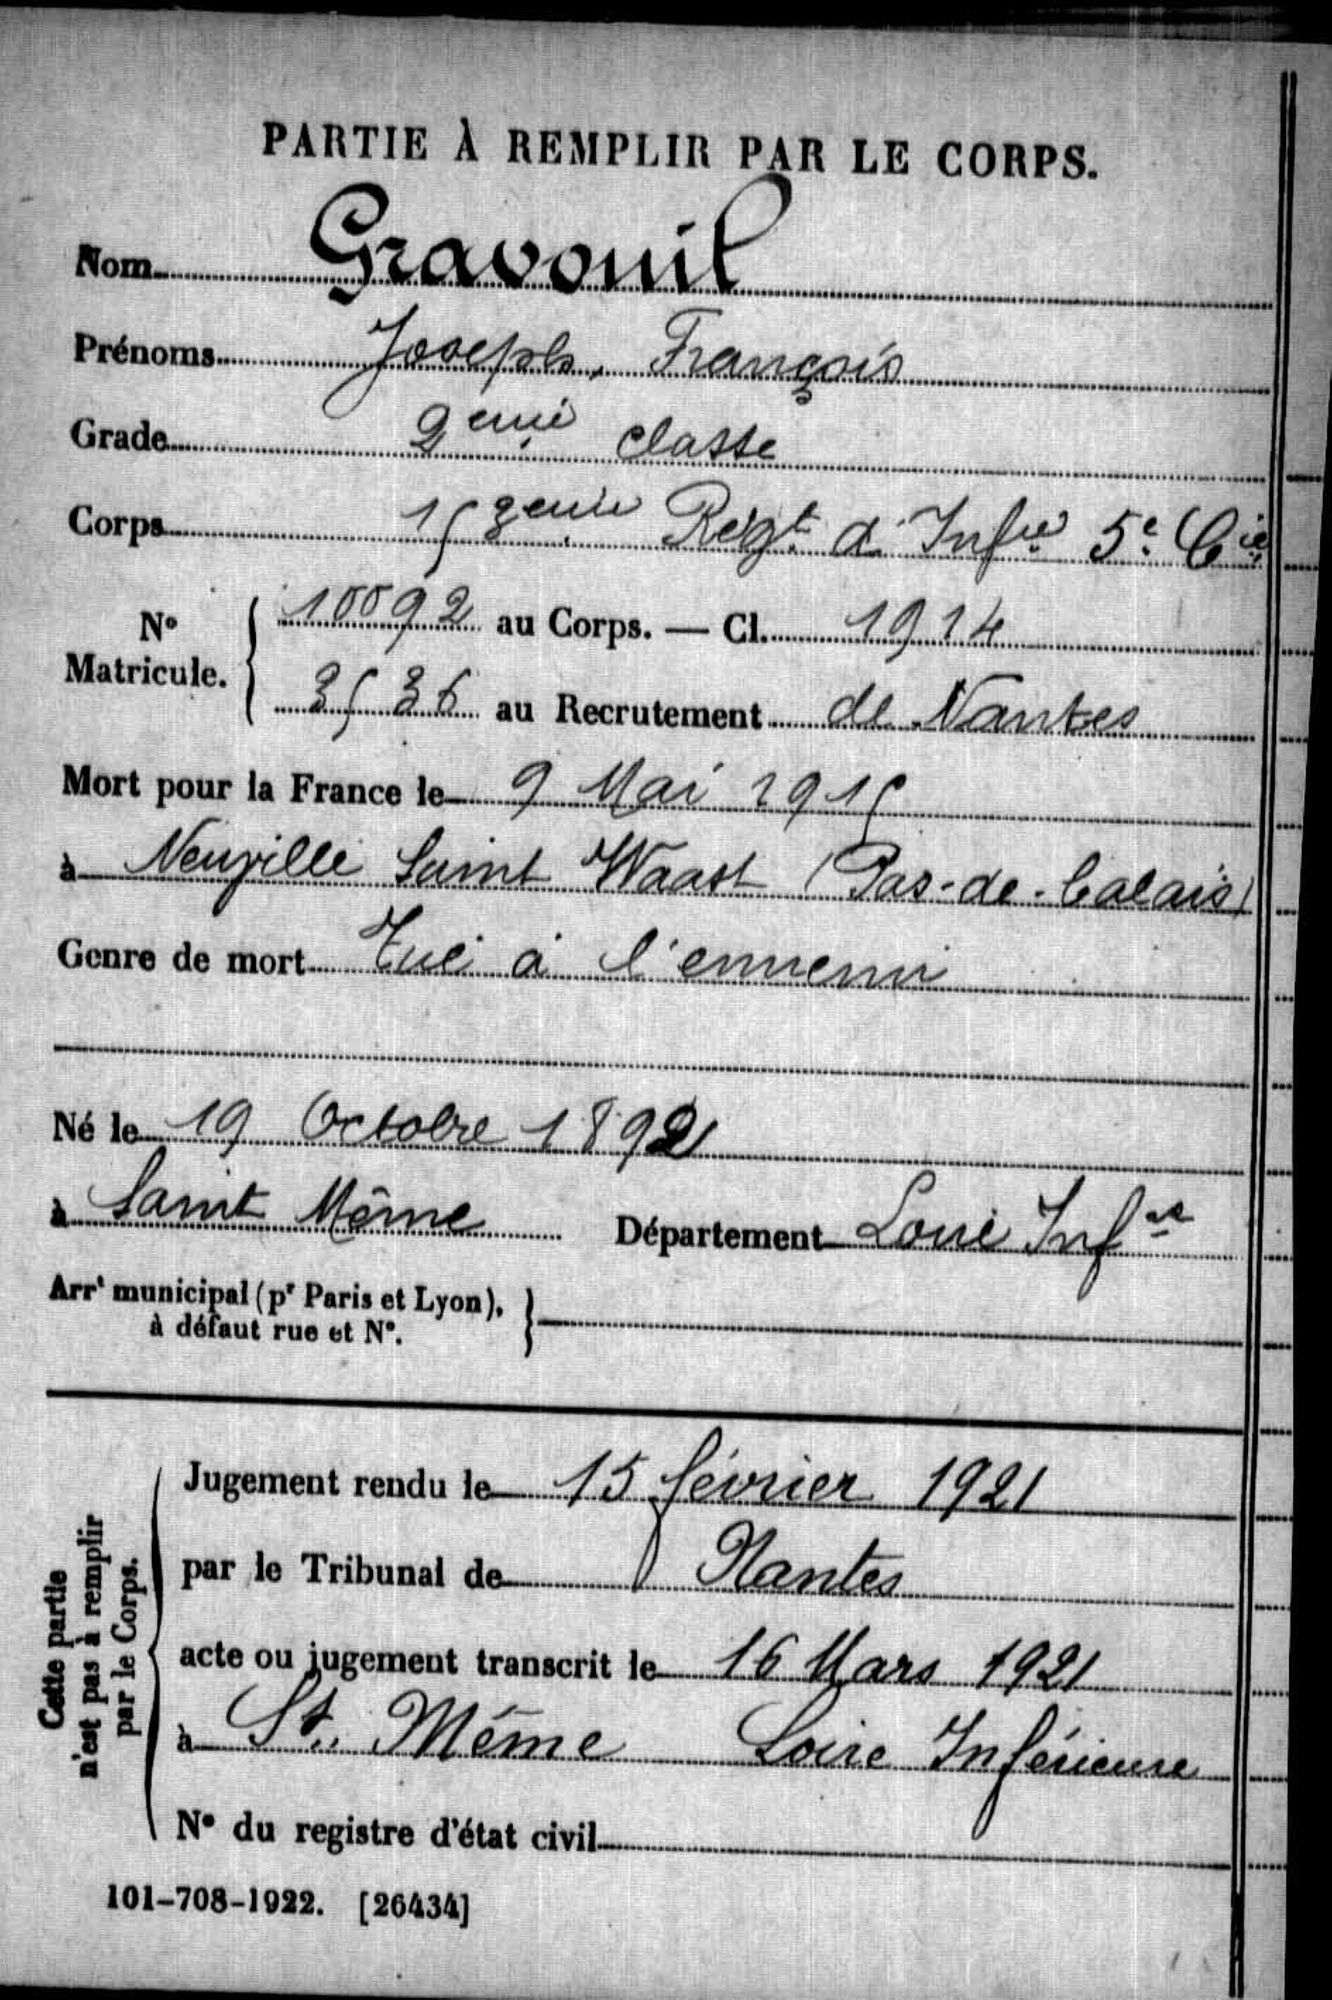 PARTIE À REMPLIR PAR LE CORPS.
Nom Gravouil
Prénoms Joseph, François
Grade 2eme classe
Corps 153eme Régt d'Infie 5e Cie
10092 au Corps. — Cl. 1914
N° Matricule.
3536 au Recrutement de Nantes
Mort pour la France le 9 Mai 1915
à Neuville Saint Waast (Pas-de-Calais)
Genre de mort Tué à l'ennemi
Né le 19 Octobre 1892
à Saint Même Département Loire Infre
Arrt municipal (pr Paris et Lyon),
à défaut rue et N°.
Cette partie
n'est pas à remplir
par le Corps.
Jugement rendu le 15 février 1921
par le Tribunal de Nantes
acte ou jugement transcrit le 16 Mars 1921
à St. Même Loire Inférieure
N° du registre d'état civil
101-708-1922. [26434]